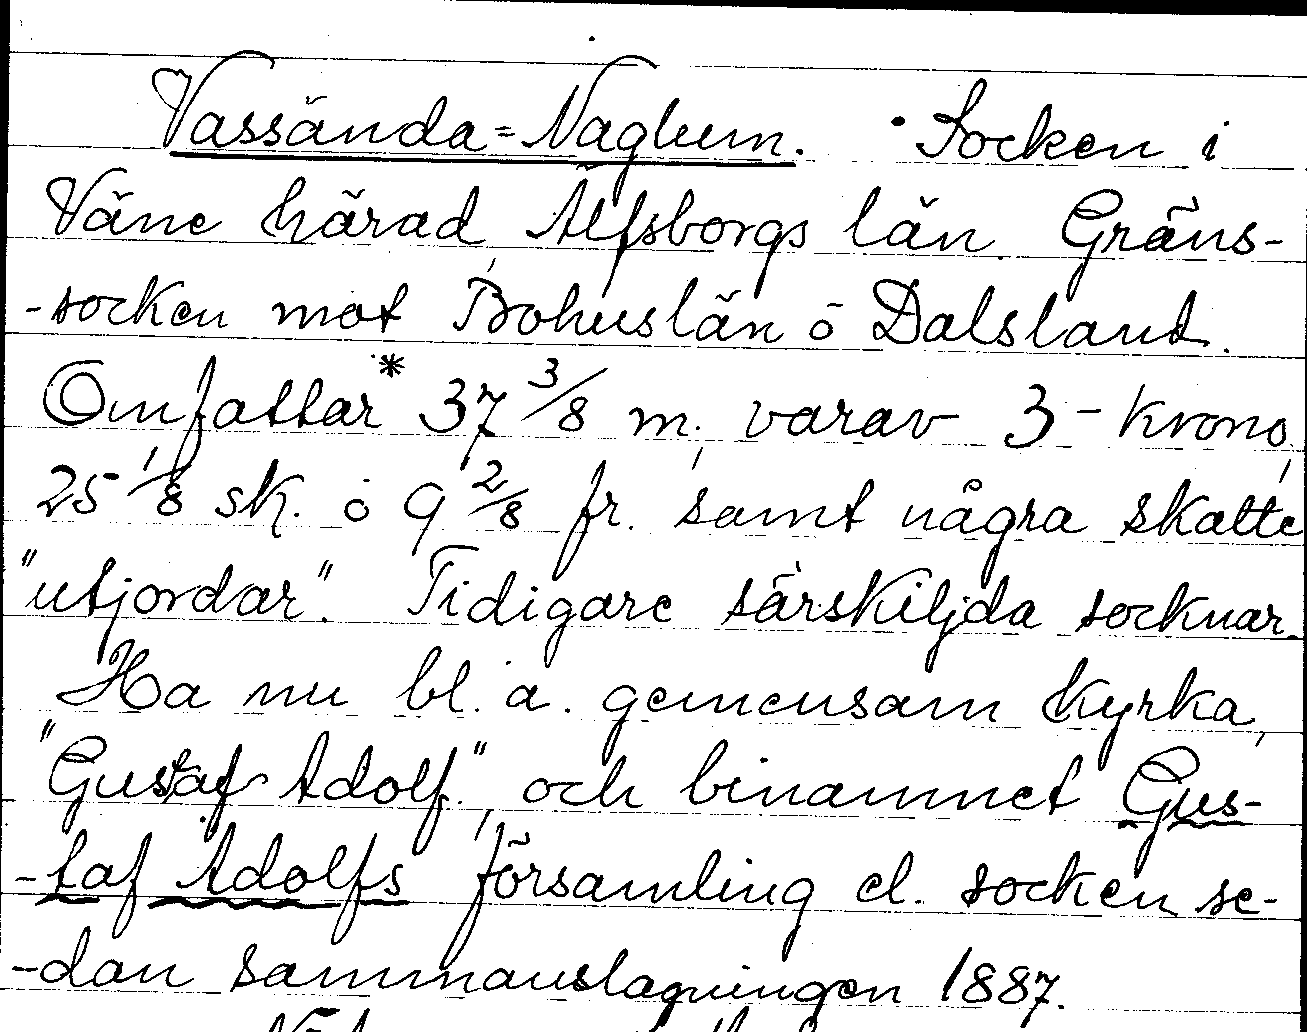 Vassända=Naglum. Socken i
Väne härad, Älfsborgs län. Gräns-
-socken mot Bohuslän o Dalsland.
Omfattar* 37 3/8 m., varav 3 - krono,
25 1/8 sk. o 9 2/8 fr. samt några skatte
"utjordar". Tidigare särskiljda socknar.
Ha nu bl. a. gemensam kyrka,
"Gustaf Adolf", och binamnet Gus-
-taf Adolfs församling el. socken se-
-dan sammanslagningen 1887.